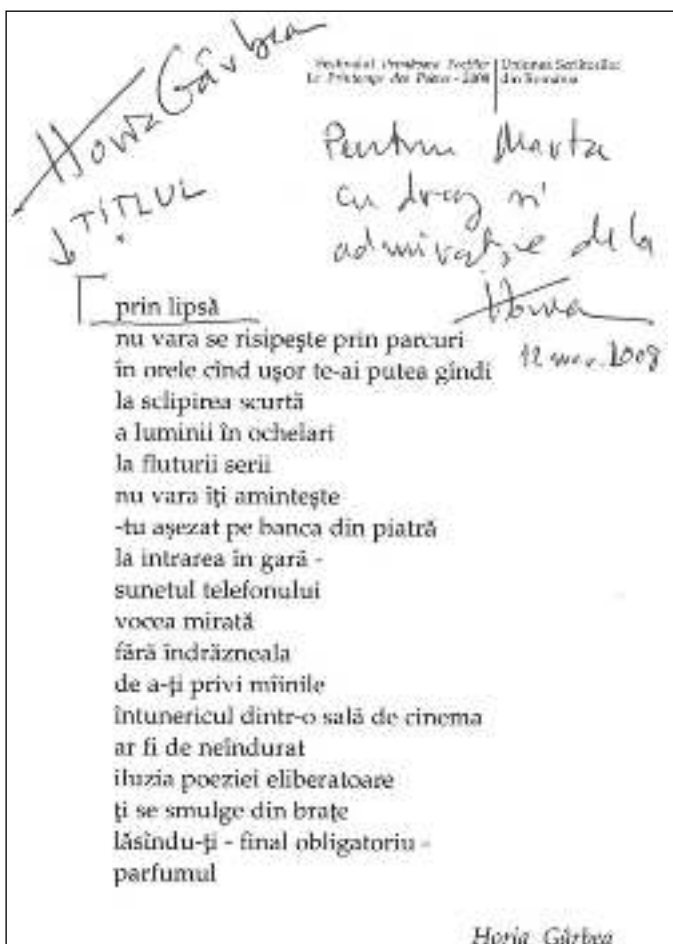 Horia Gârbea
Festivalul Primăvara Poeților
Le Printemps des Poètes - 2008
Uniunea Scriitorilor
din România
↓ TITLUL
Pentru Marta
cu drag și
admirație de la
Horia
12 mar. 2008
prin lipsă
nu vara se risipește prin parcuri
în orele cînd ușor te-ai putea gîndi
la sclipirea scurtă
a luminii în ochelari
la fluturii serii
nu vara îți amintește
-tu așezat pe banca din piatră
la intrarea în gară -
sunetul telefonului
vocea mirată
fără îndrăzneala
de a-ți privi mîinile
întunericul dintr-o sală de cinema
ar fi de neîndurat
iluzia poeziei eliberatoare
ți se smulge din brațe
lăsîndu-ți - final obligatoriu -
parfumul
Horia Gârbea